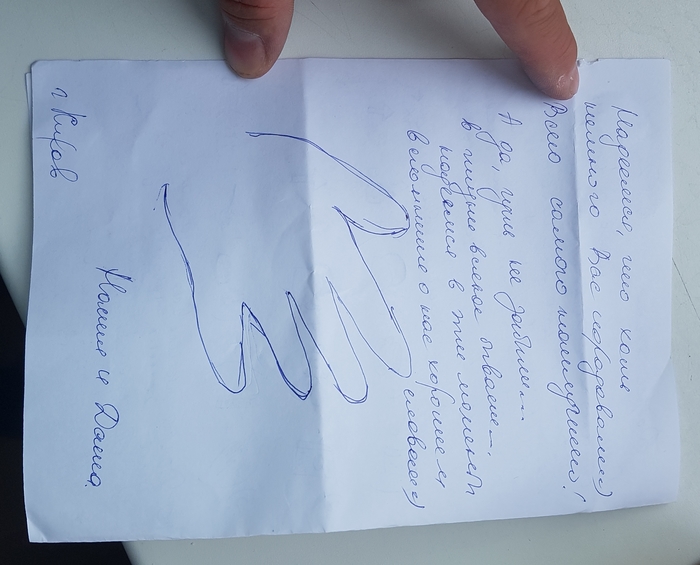 Надеемся, что хоть
немного Вас порадовали:)
Всего самого наилучшего!
А да, чуть не забыли...
В жизни всякое бывает...
надеемся в тие момент
вспомните о нас хорошем
словесе:)
Настя и Даша.
г. Киров